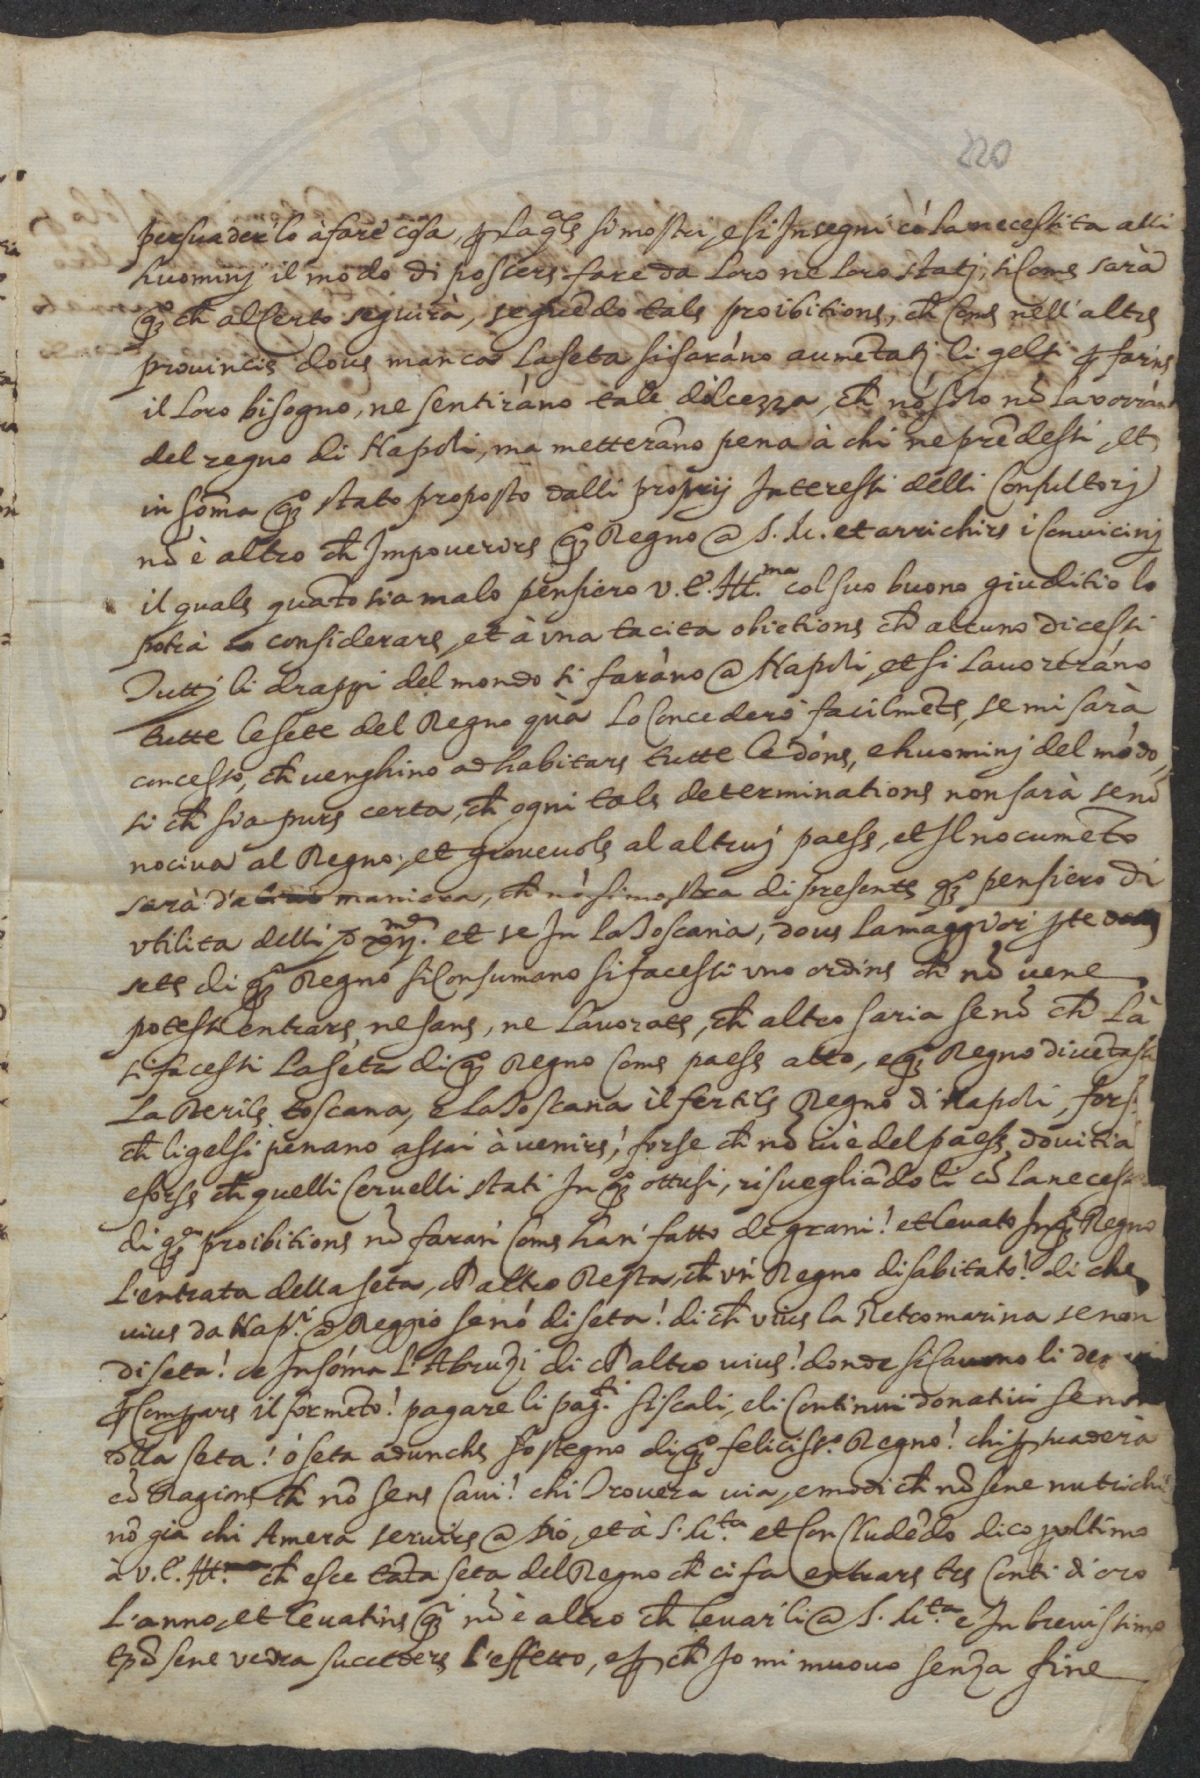 PVBLIC
220
persuaderlo à fare cosa, p la qle si mostri, e si Insegni có la necessita alli
huominj il modo di poscers fare da loro ne loro statj, si Come sarà
qo ch al Certo seguirà, seguedo tale proibitione, ch Come nell' altre
provincie dove manca la seta si faráno aumetatj li gelsi p farne
il loro bisogno, ne sentiráno tale dolcezza, ch nó solo nó la vorráno
del regno di Napoli, ma metteráno pena à chi ne prédessi, et
in soma qo stato proposto dalli proprij Interessi delli Consultorj
nó è altro ch Impouerire qo Regno @ S. M. et arrichire i Convicinj
il quale quato sia malo pensiero v. E. Ill.ma col suo buono giuditio lo
potrà considerare, et à una tacita obietione ch alcuno dicessi
Tuttj li drappi del mondo si faráno @ Napoli, et si lavoreráno
tutte le sete del Regno quà lo Concederó facilmete, se mi sarà
concesso, ch venghino ad habitare tutte le dóne, e huominj del módo,
si ch sia pure certa, ch ogni tale determinatione non sarà senó
nociva al Regno, et giovevole al altruj paese, et Il nocumeto
sarà d'a maniera, ch nó si mostra di presente qo pensiero di
utilita delli et se In la Toscana, dove la maggior pte
sete di qo Regno si Consumano si facessi uno ordine ch nó vene
potessi entrare, ne sane, ne lavorate, ch altro saria senó ch là
si facessi la seta di qo Regno Come paese atto, e qo Regno diuetassi
la sterile toscana, e la Toscana il fertile Regno di Napoli, forse
ch li gelsi penano assai à venire! forse ch nó vi è del paese dovitia
e forse ch quelli Cervelli stati In qo ottusi, risvegliádoli có la necess
di qa proibitione nó faran Come han fatto de grani! et levato In qo Regno
l'entrata della seta, ch altro Resta, ch un Regno disabitato! di che
vive da Napi @ Reggio senó di seta! di ch vive la Retromarina se non
di seta! e In sóma l'Abruzi di ch altro vive! donde si Cavano li
p Comprare il formeto! pagare li pag.ti fiscali, e li Continui donativi se non
dlla seta! ó seta adunche sostegno di qo feliciss.o Regno! chi p suaderà
có Ragione ch nó sene Cavi! chi Trovera via, e modi ch nó sene nutrichi
nó già chi Amera servire @ Dio, et à S. M.ta et Concludédo dico p ultimo
à v. E. Ill. ch esce tata seta del Regno ch ci fa entrare tre Conti d'oro
l'anno, et levatine qi nó è altro ch levarli @ S. M.ta e In brevissimo
tpó sene vedra succedere l'effetto, e p ch Io mi muovo senza fine